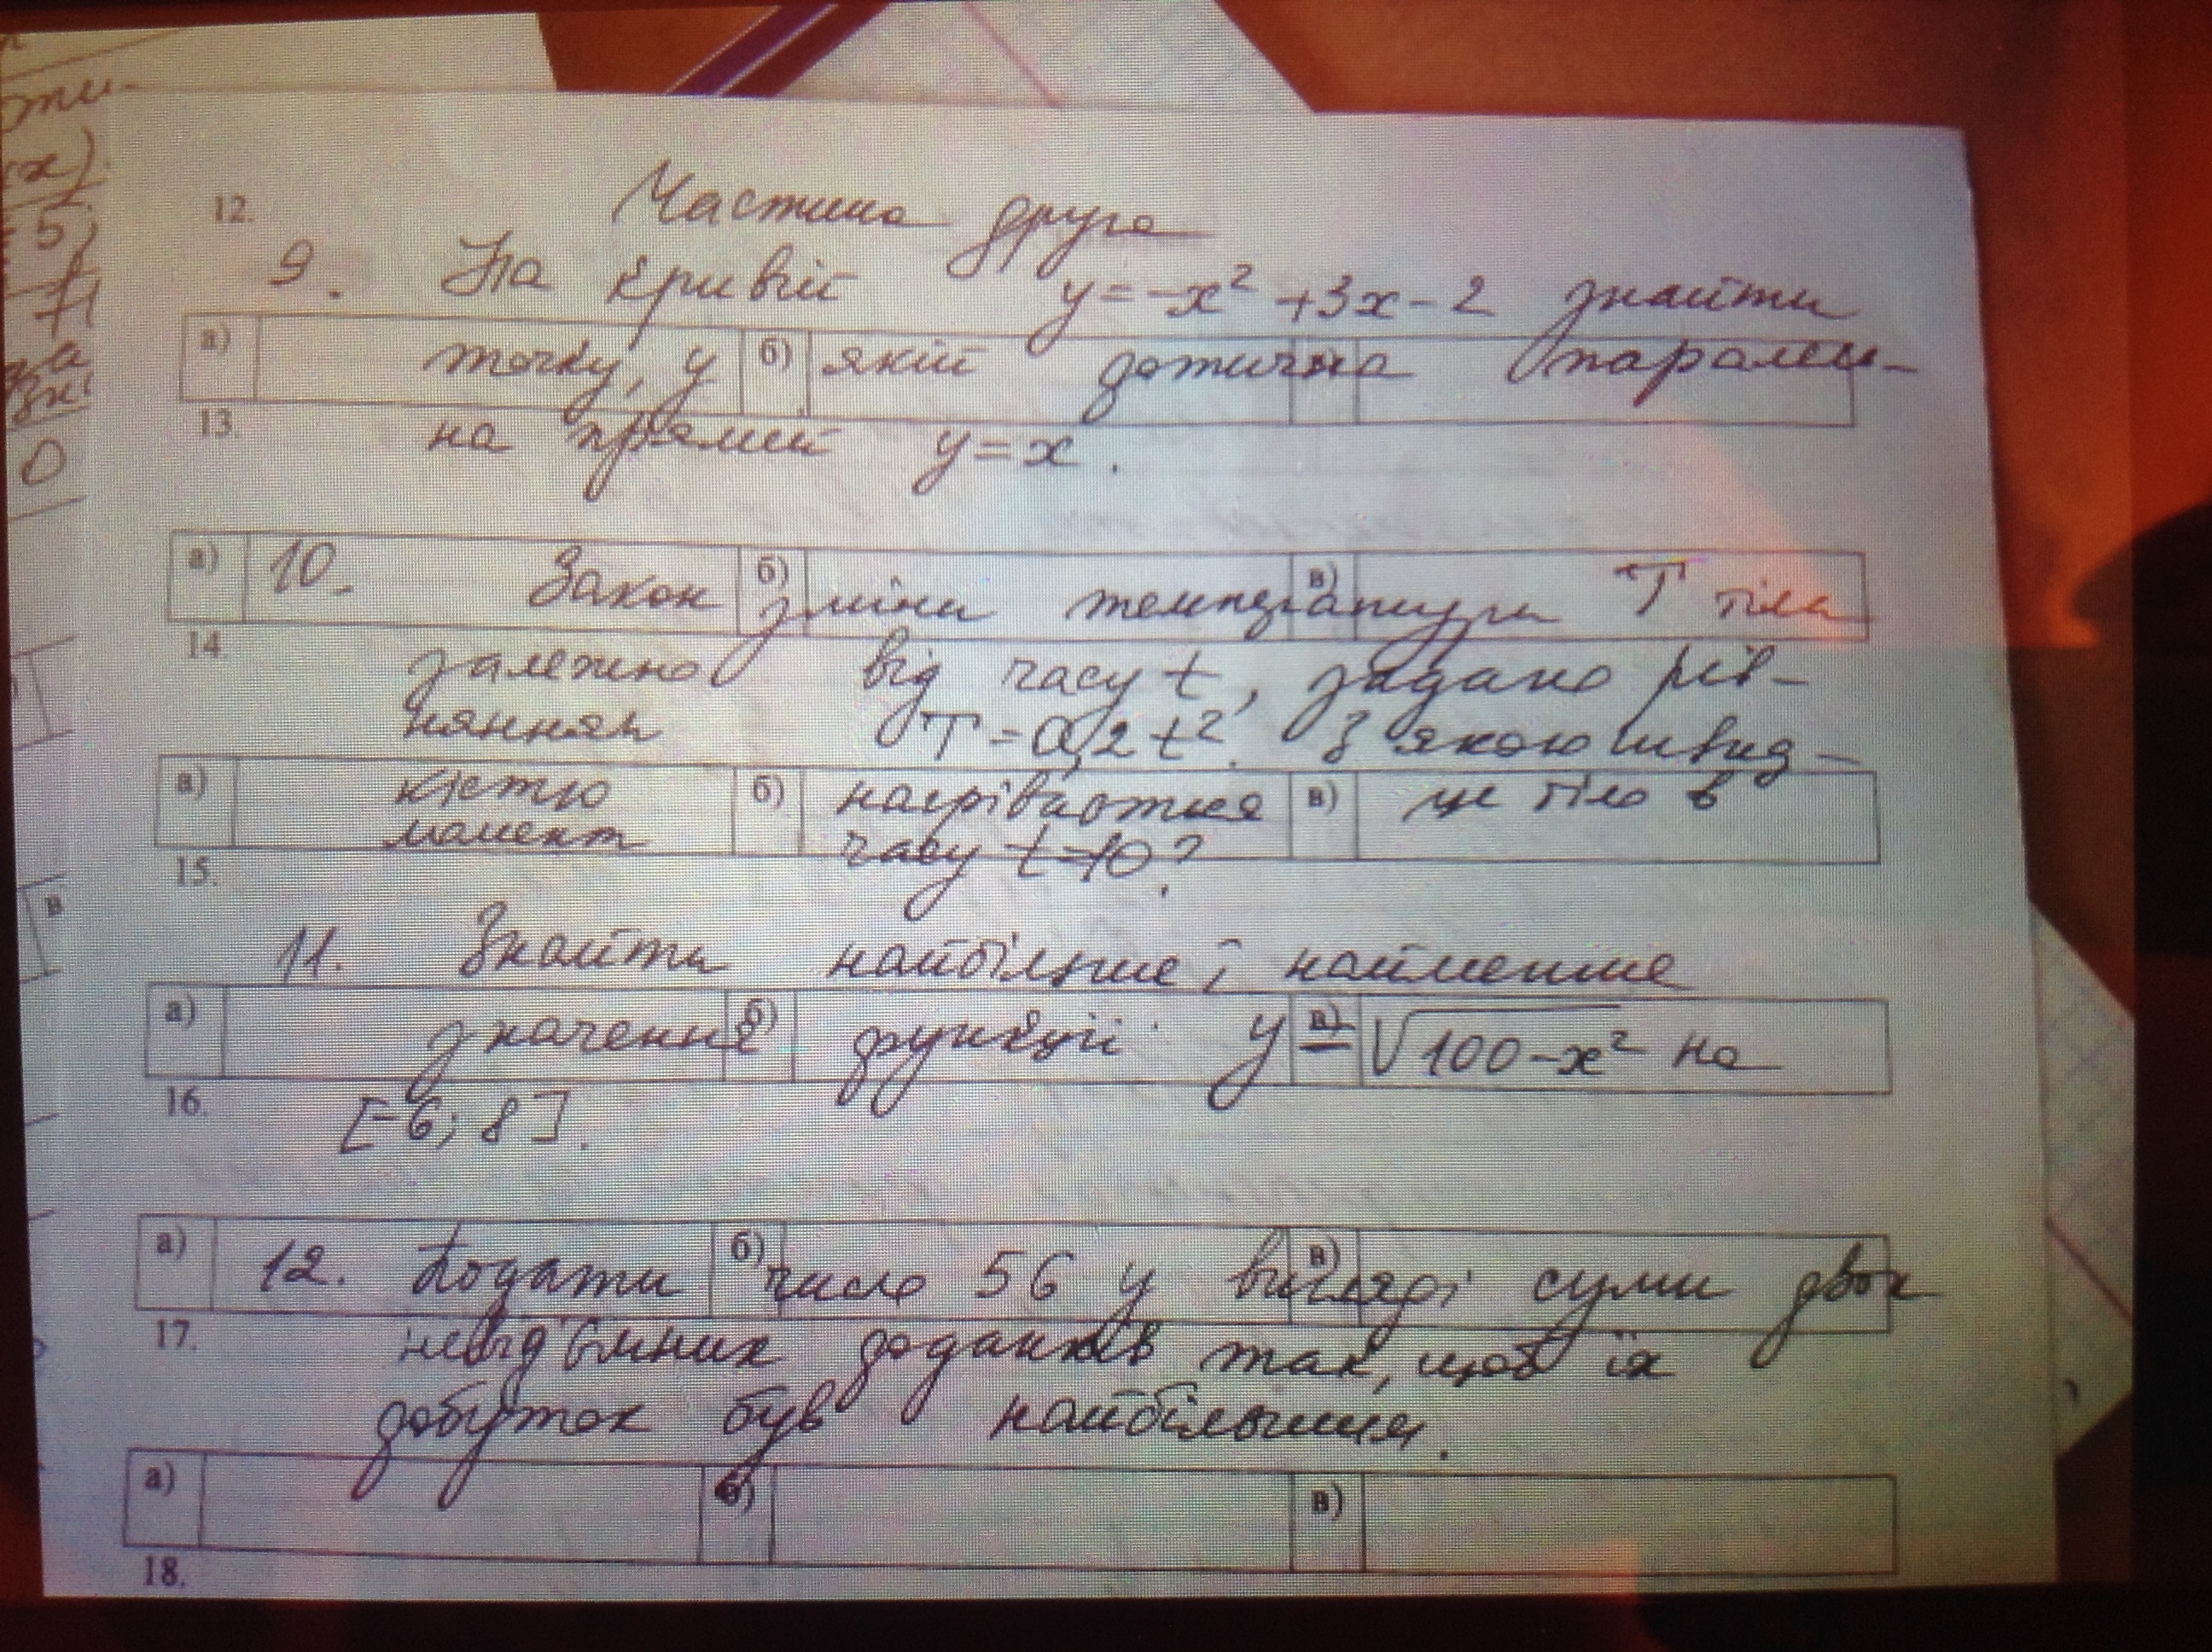 12. Частина друга
9. На кривій y=-x²+3x-2 знайти
а) точку, у б) якій дотична паралель-
13. на прямій y=x.
а) 10. Закон б) зміни температури в) T тіла
14. залежно від часу t, задано рів-
нянням T=0,2t². З якою швид-
а) кістю б) нагрівається в) це тіло в
момент часу t=10?
15.
11. Знайти найбільше і найменше
а) значення б) функції y = в) √100-x² на
16. [-6; 8].
а) 12. Подати б) число 56 у вигляді в) суми двох
17. невід'ємних доданків так, щоб їх
добуток був найбільшим.
а) б) в)
18.